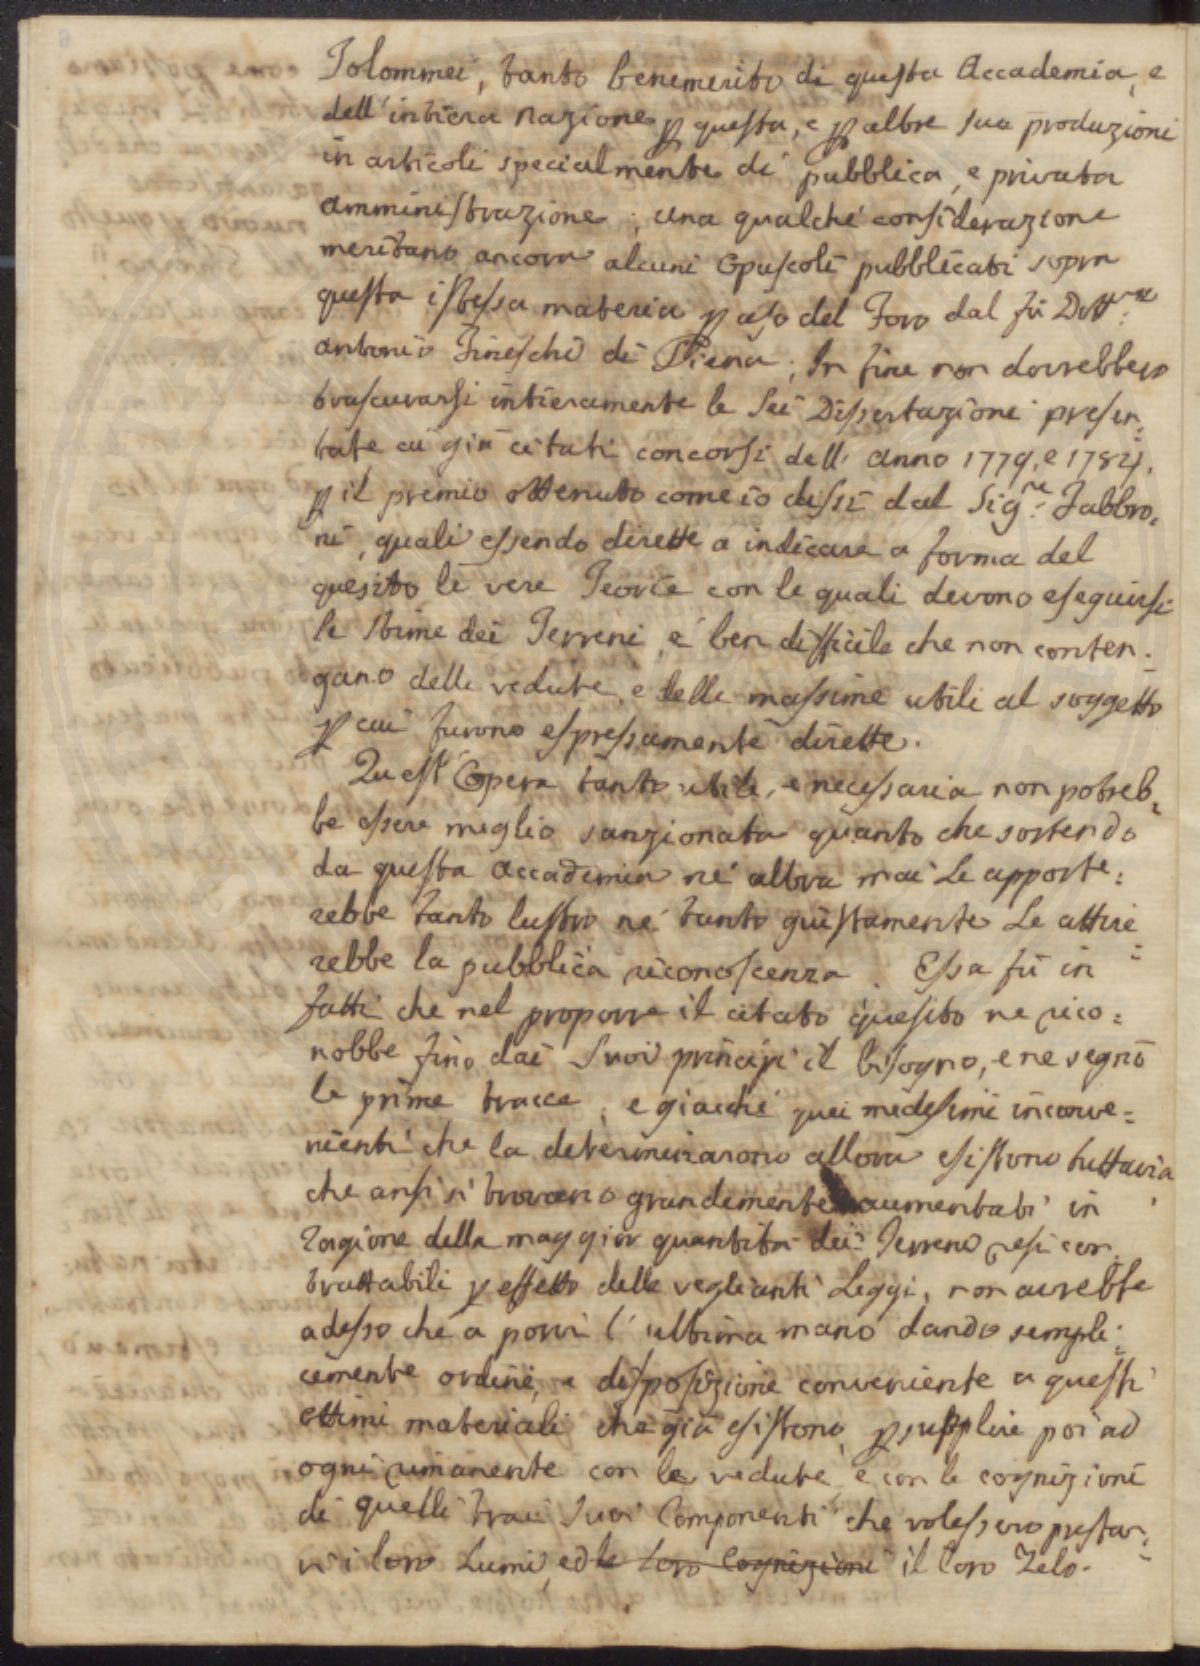 Tolommei, tanto benemerito di questa Accademia, e
dell'intiera Nazione p questa, e p altre sue produzioni
in articoli specialmente di pubblica, e privata
amministrazione; una qualche considerazione
meritano ancora alcuni Opuscoli pubblicati sopra
questa istessa materia p uso del Foro dal fù Dott.re
Antonio Fineschi di Siena; In fine non dovrebbero
trascurarsi intieramente le Sei Dissertazioni presen=
tate ai già citati concorsi dell'Anno 1779, e 1784.
p il premio ottenuto come io dissi dal Sig.re Fabbro=
ni, quali essendo dirette a indicare a forma del
quesito le vere Teorie con le quali devono eseguirsi
le stime dei Terreni, è ben difficile che non conten=
gano delle vedute, e delle massime utili al soggetto
p cui furono espressamente dirette.
Quest'Opera tanto utile, e necessaria non potreb=
be essere meglio sanzionata quanto che sortendo
da questa Accademia nè altra mai Le apporte=
rebbe tanto lustro nè tanto giustamente Le attire=
rebbe la pubblica riconoscenza. Essa fù in
fatti che nel proporre il citato quesito ne rico=
nobbe fino dai Suoi principi il bisogno, e ne segnò
le prime tracce, e giacchè quei medesimi inconve=
nienti che la determinarono allora esistono tuttavia,
che ansi si trovano grandemente aumentati in
ragione della maggior quantità dei Terreno resi con
trattabili p effetto delle veglianti Leggi, non avrebbe
adesso che a porvi l'ultima mano dando sempli=
cemente ordine, e disposizione conveniente a questi
ottimi materiali che già esistono, p supplire poi ad
ogni rimanente con le vedute, e con le cognizioni
di quelli trai Suoi Componenti che volessero prestar=
vi i loro Lumi, ed le loro Cognizioni il loro Zelo.